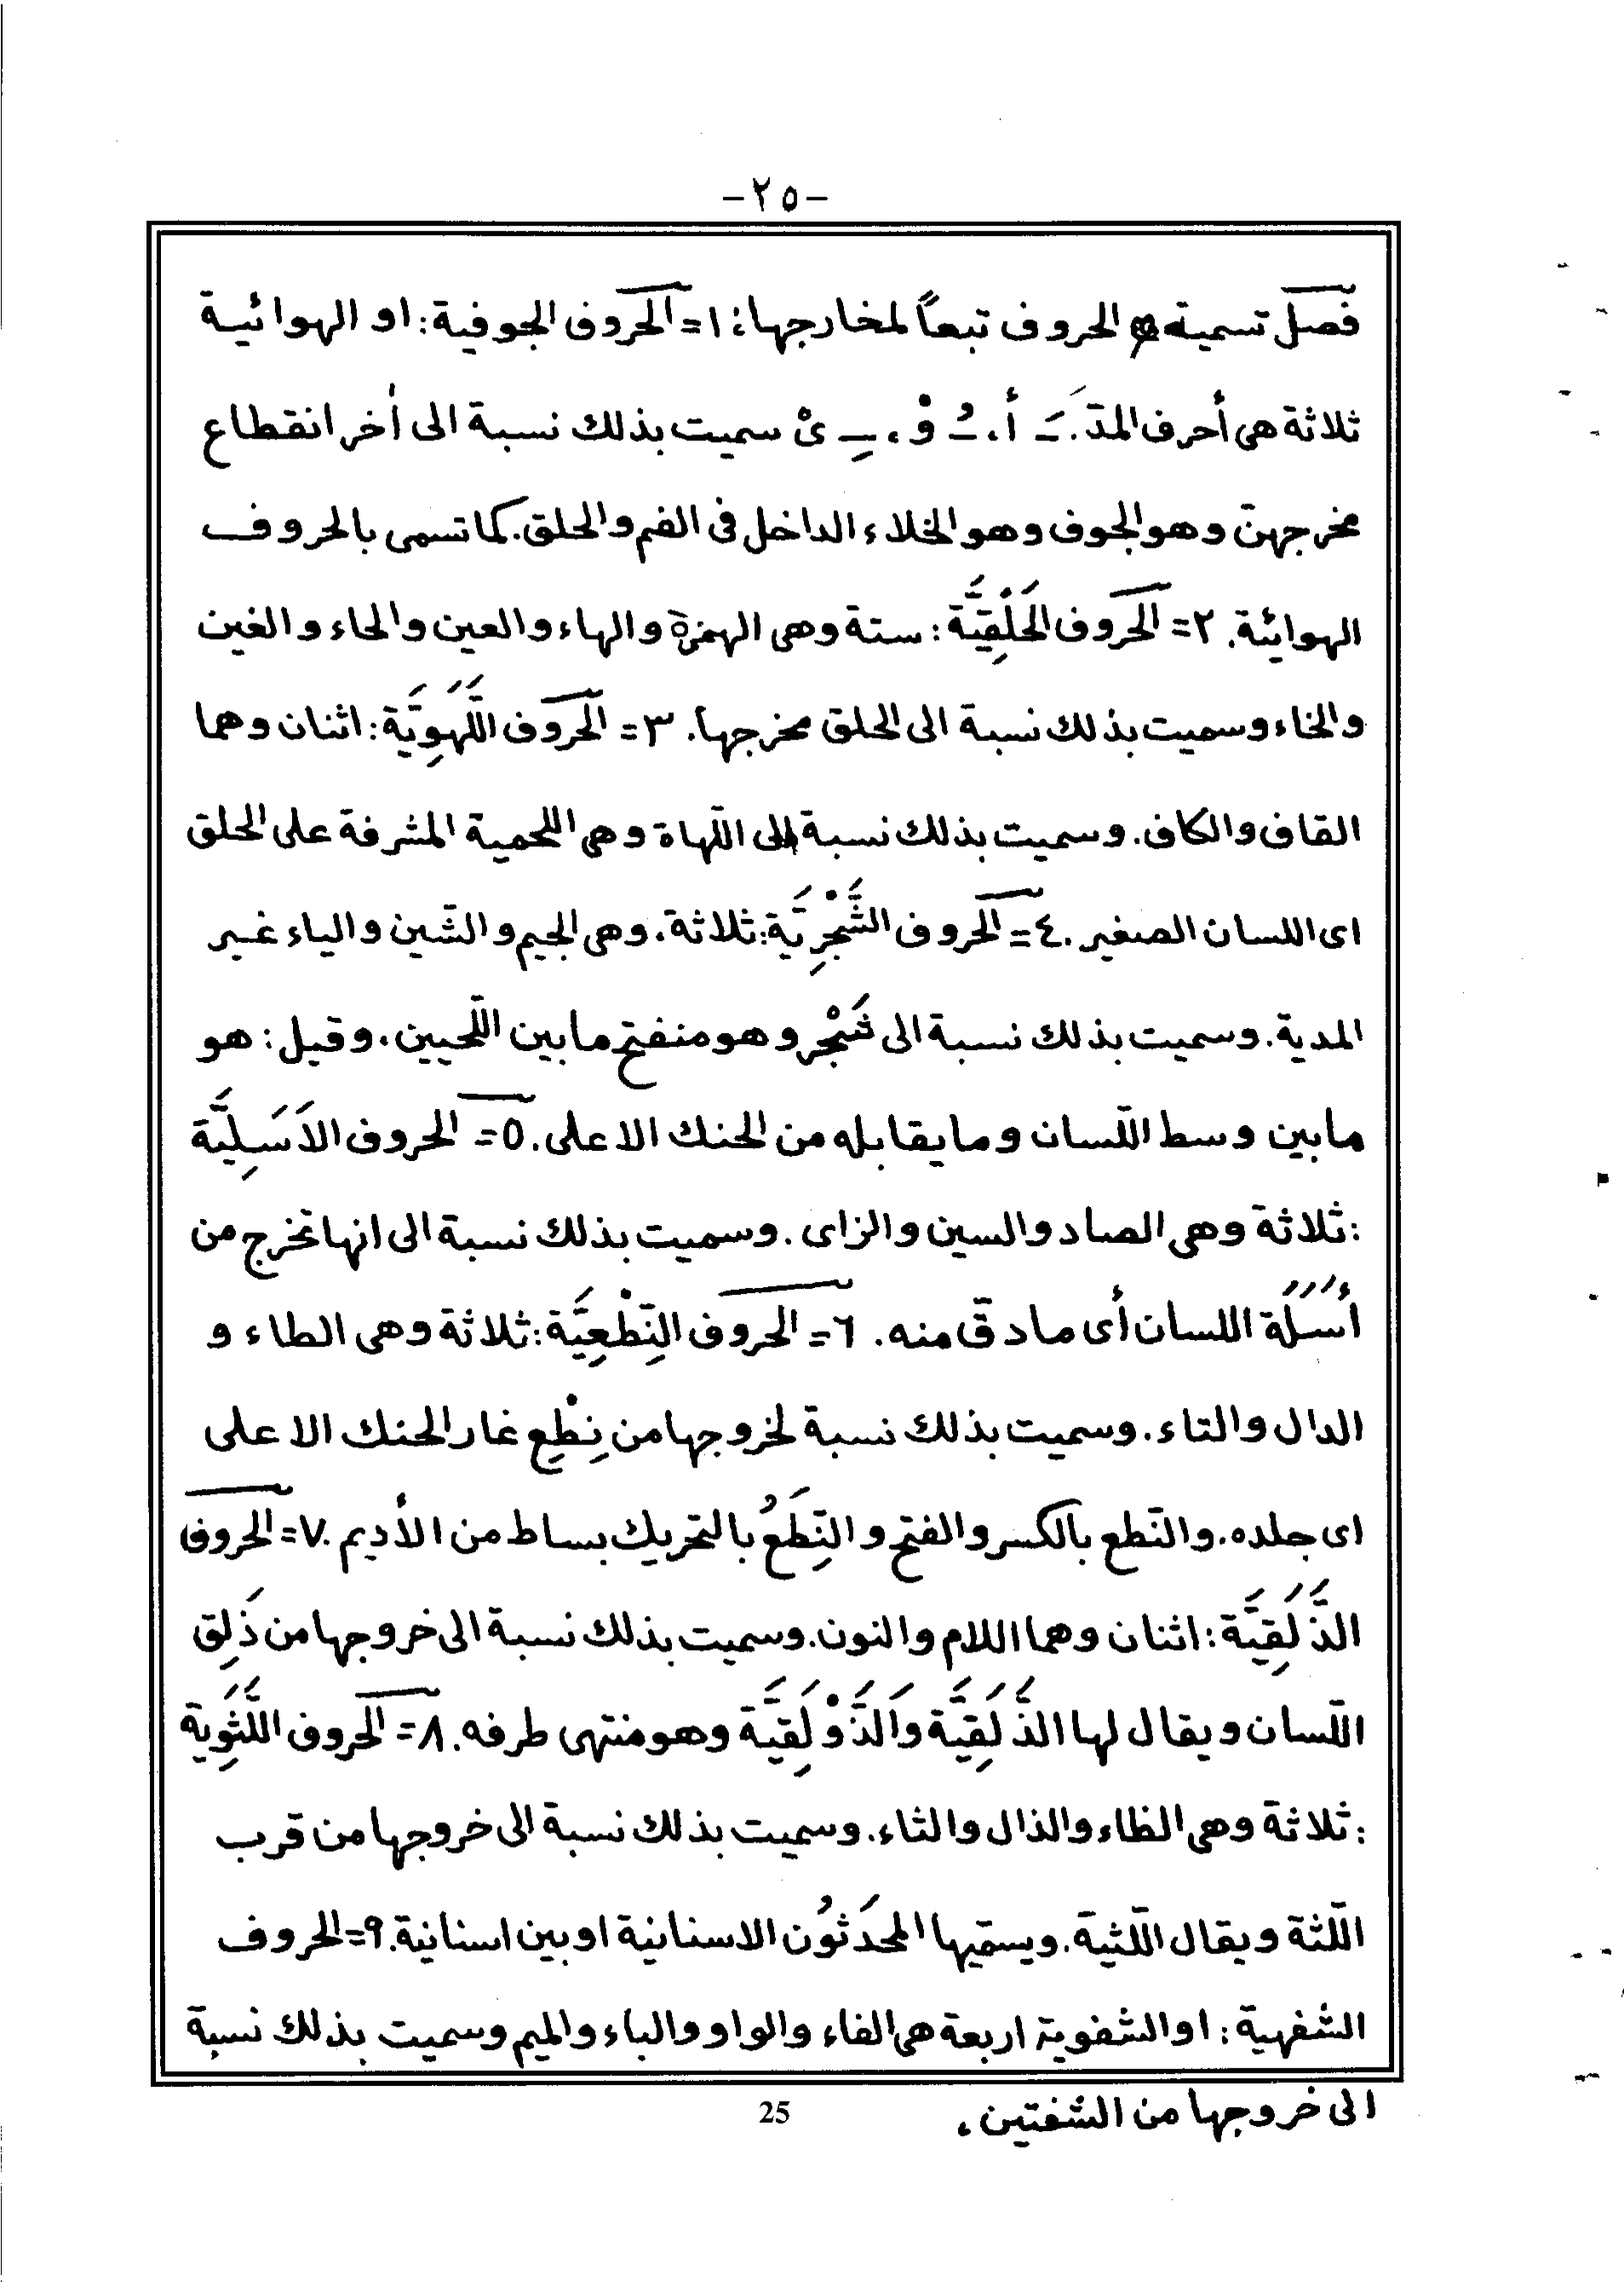 -٢٥-
فصل تسمية الحروف تبعاً لمخارجها: ١= الحروف الجوفية: او الهوائية
ثلاثة هى أحرف المدّ. ـَ أ، ـُ وْ، ـِ ىْ سميت بذلك نسبة الى أخر انقطاع
مخرجهن وهو الجوف وهو الخلاء الداخل فى الفم والحلق. كما تسمى بالحروف
الهوائية. ٢= الحروف الحَلْقِيَّة: ستة وهى الهمزة والهاء والعين والحاء والغين
والخاء وسميت بذلك نسبة الى الحلق مخرجها. ٣= الحروف اللَّهَوِيَّة: اثنان وهما
القاف والكاف. وسميت بذلك نسبة إلى اللّهاة وهى اللحمية المشرفة على الحلق
اى اللسان الصغير. ٤= الحروف الشَّجْرِيَّة: ثلاثة. وهى الجيم والشّين والياء غير
المدية. وسميت بذلك نسبة الى شَجْر وهو منفتح مابين اللّحيين. وقيل: هو
مابين وسط اللّسان وما يقابله من الحنك الاعلى. ٥= الحروف الاَسَلِيَّة
: ثلاثة وهى الصاد والسين والزاى. وسميت بذلك نسبة الى انها تخرج من
أَسَلَة اللسان أى مادق منه. ٦= الحروف النِّطْعِيَّة: ثلاثة وهى الطاء و
الدال والتاء. وسميت بذلك نسبة لخروجها من نِطْعِ غار الحنك الاعلى
اى جلده. والنّطع بالكسر والفتح والنِّطَعُ بالتحريك بساط من الأديم. ٧= الحروف
الذَّلَقِيَّة: اثنان وهما اللام والنون. وسميت بذلك نسبة الى خروجها من ذَلِق
اللّسان ويقال لها الذَّلَقِيَّة وَالذَّوْلَقِيَّة وهو منتهى طرفه. ٨= الحروف اللَّثَوِية
: ثلاثة وهى الظاء والذال والثاء. وسميت بذلك نسبة الى خروجها من قرب
اللّثة ويقال اللّثية. ويسمّيها المحَدثُون الاسنانية اوبين اسنانية. ٩= الحروف
الشفهية: او الشفوية اربعة هى الفاء والواو والباء والميم وسميت بذلك نسبة
الى خروجها من الشفتين.
25